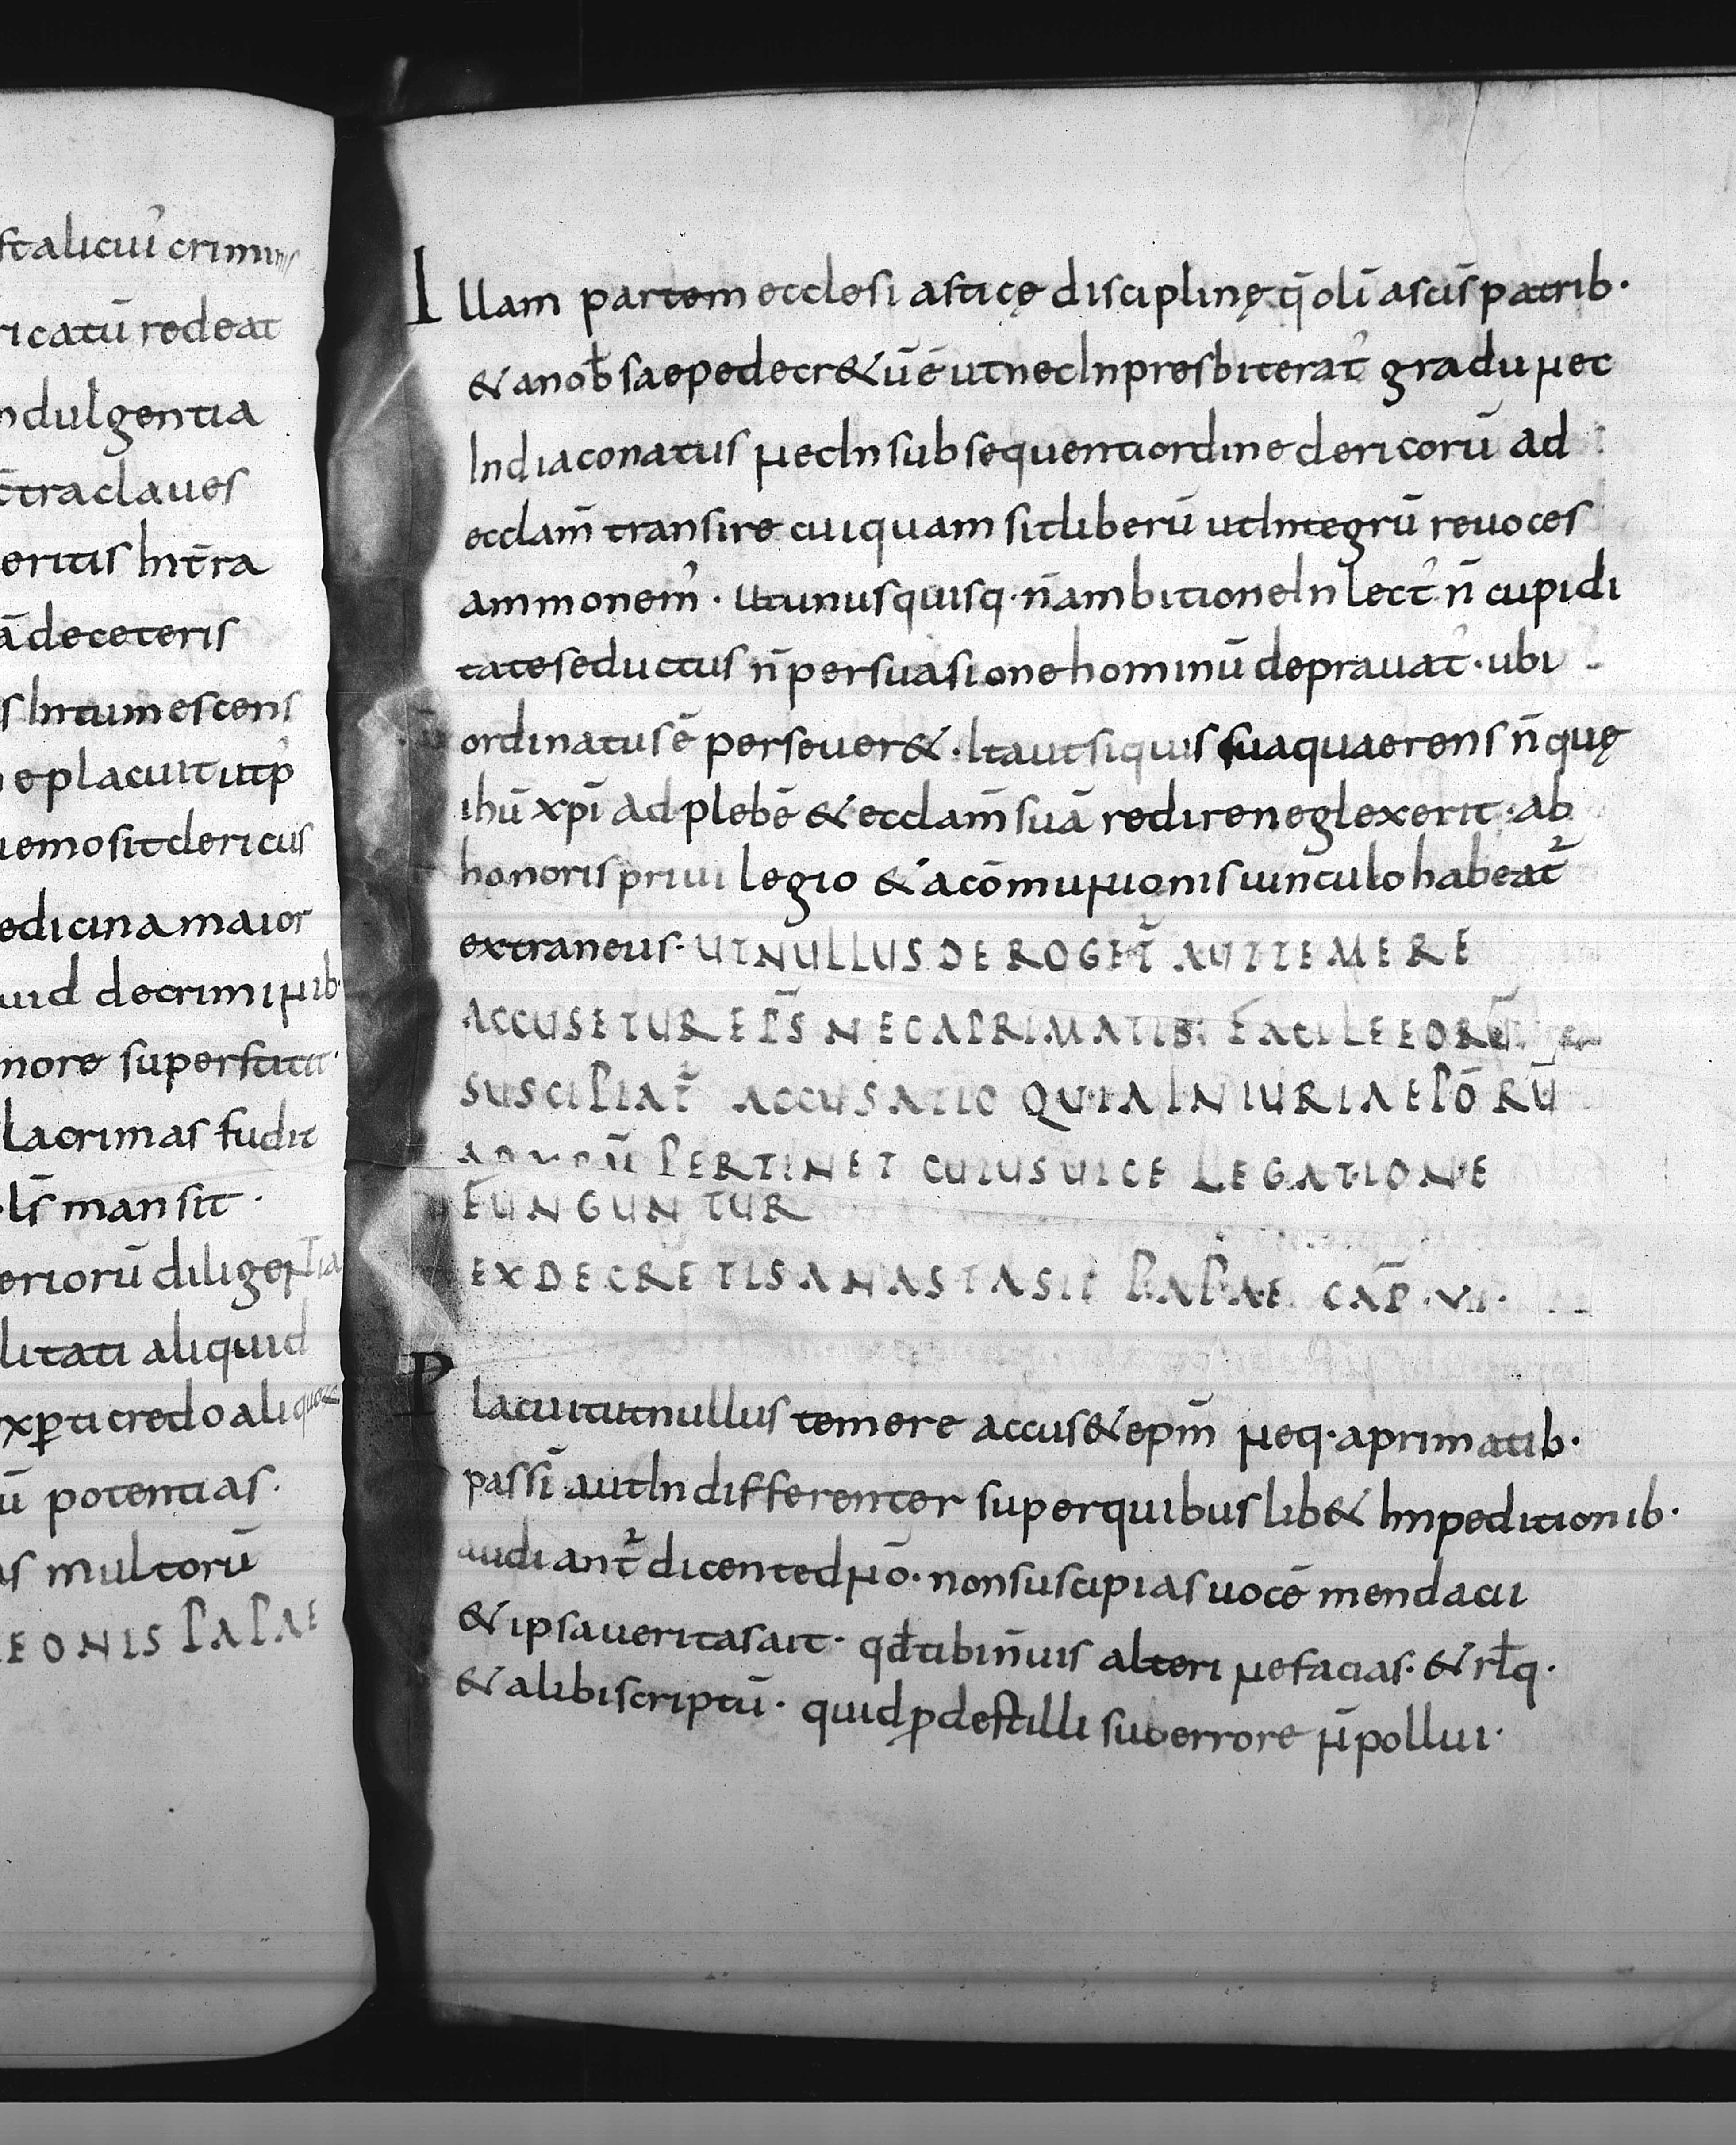 stalicui' criminis
ricatū redeat
ndulgentia
c̄traclaues
eritis Int̄ra
ādeceteris
s Intumescens
e placuit utp'
nemo sit clericus
edicina maior
uid decriminib·
nore superstitit·
lacrimas fudit
ls̄ mansit ·
eriorū diligentia
litati aliquid
xꝑti credo aliquoz
ū potentias·
as multorū
EONIS PAPAE
Illam partem ecclesiasticę disciplinę q̄ olī a scīs patrib·
& a nob̄ saepe decr&ū ē ut nec In presbiterat' gradu nec
In diaconatus nec In subsequenti ordine clericorū ad
eccłam̄ transire cuiquam sit liberū ut Integrū reuoces
ammonem'· Ut unusquisq· n̄ ambitione Inlect' n̄ cupidi
tate seductus n̄ persuasione hominū deprauat'· ubi
ordinatus ē perseuer&· Ita ut siquis sua quaerens n̄ quę
ihū xpī ad plebē & eccłam̄ suā redire neglexerit· ab
honoris priuilegio & a cōmunionis uinculo habeat̄
extraneus· UT NULLUS DEROGET̄ AUT TEMERE
ACCUSETUR EPS̄ NEC A PRIMATIB· FACILE EORŪ
SUSCIPIAT̄ ACCUSATIO QUIA INIURIA EPŌRŪ
PERTINET CUIUS UICE LEGATIONE
FUNGUNTUR
EX DECRETIS ANASTASII PAPAE CAP̄·VI·
Placuit ut nullus temere accus& epm̄ neq· a primatib·
passī aut Indifferenter superquibuslib& Inpeditionib·
audiant̄ dicente dn̄o· non suscipias uocē mendacii
& ipsa ueritas ait· qd̄ tibi n̄ uis alteri ne facias· & rłq·
& alibi scriptū· quid ꝓdest illi suo errore n̄ pollui·